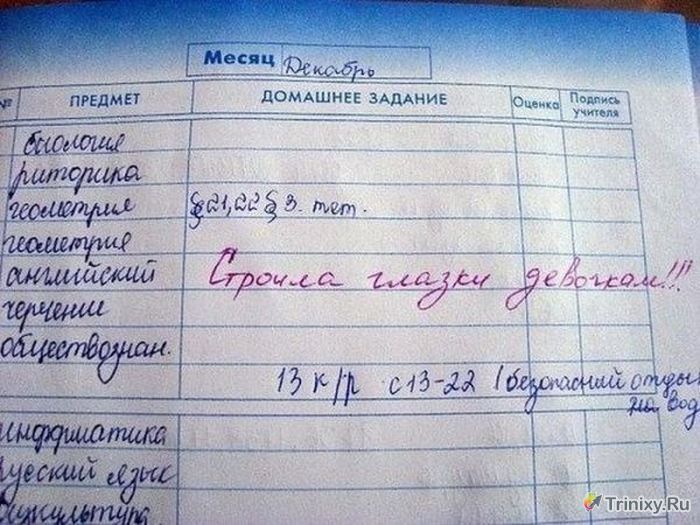 Месяц Декабрь
№ ПРЕДМЕТ ДОМАШНЕЕ ЗАДАНИЕ Оценка Подпись учителя
биология
риторика
геометрия §21,22 § 3. тет.
геометрия
английский Строила глазки девочкам!!!
черчение
обществознан.
13 к/р с 13-22 (безопасний отды
на вод
информатика
русский язык
физкультура
Trinixy.Ru